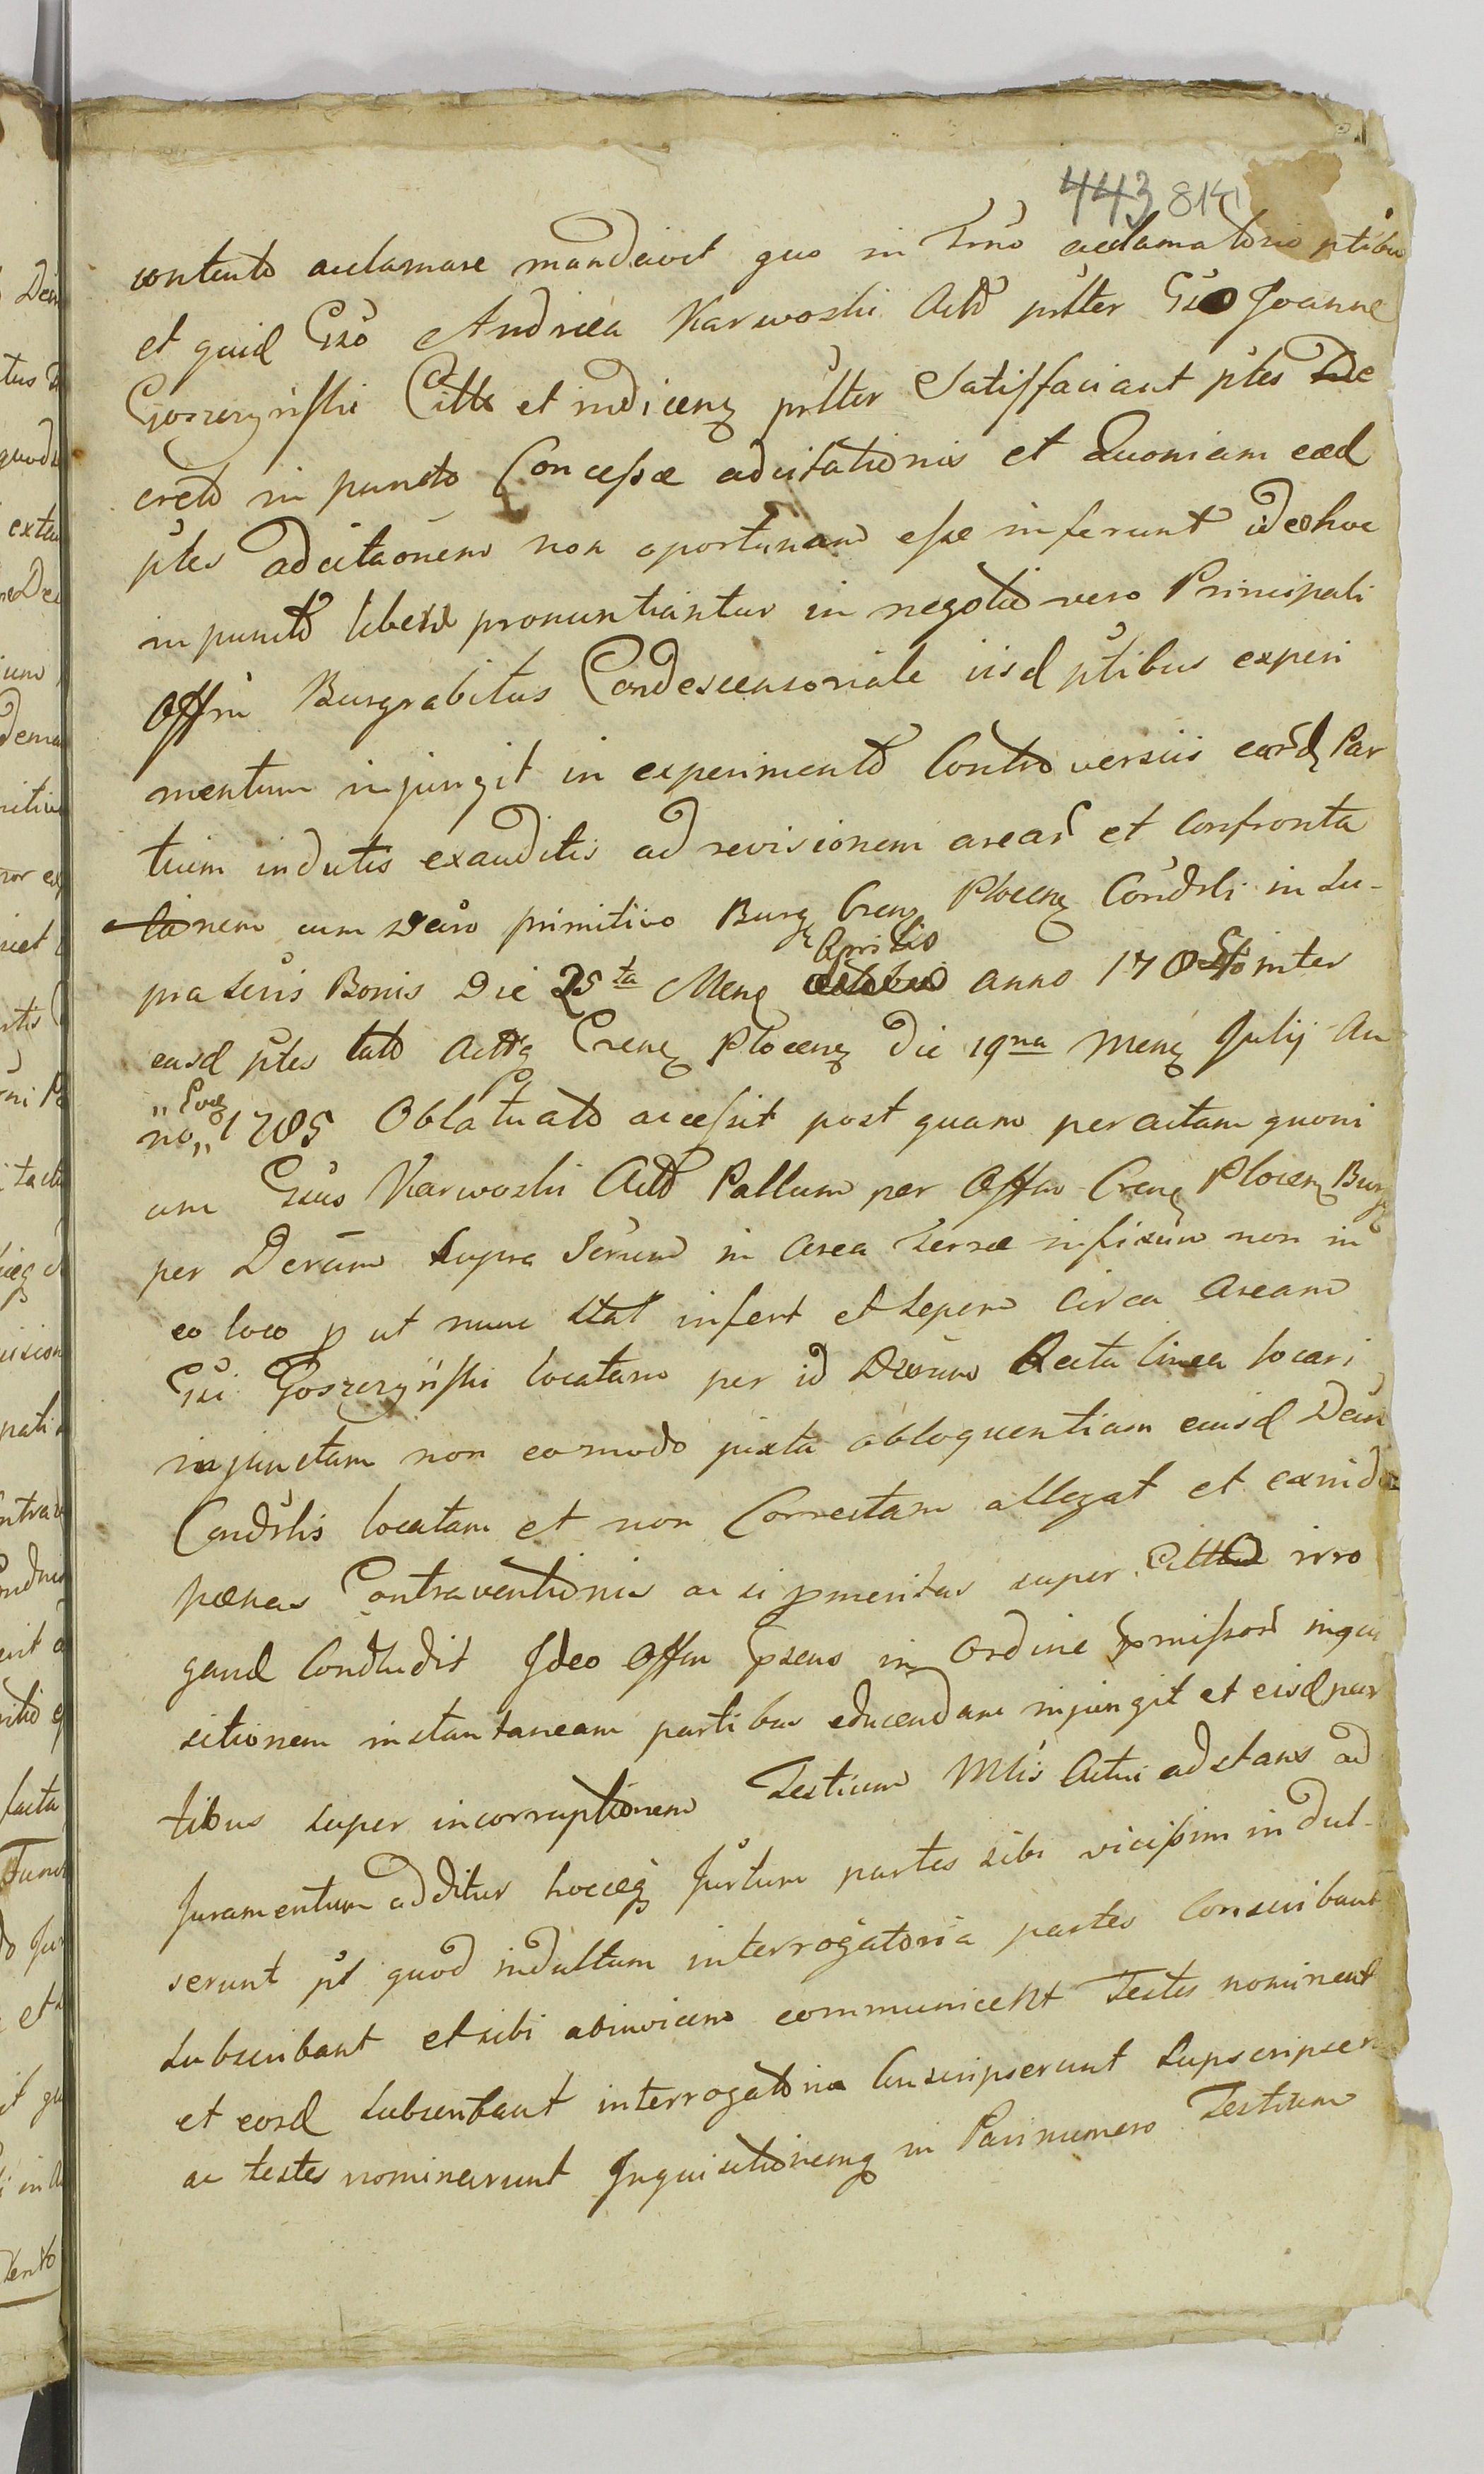 443 814
contento acclamare mandavit quo in Tmo acclamatorio ptibus
et quid Gso Andrea Karwoski Actō pstter Gso Joanne
Goszczyński Citto et indicenq pstter Satisfaciant ptes De
creto in puncto Concessæ adcitationis et Quoniam eæd
ptes adcitaōnem non oportunam esse inferunt ideo hoc
in puncto liberæ pronuntiantur in negotio vero Principali
Offm Burgrabitus Condescensoriale iisd ptibus experi
mentum injungit in experimento Controversiis eard Par
tium indutis exauditis ad revisionem arear et Confronta
tionem cum Decro primitivo Burg Crenq Plocenq Condsli in Su-
pra Scris Bonis Die 25ta Menq Aprilis anno 178 inter
easd ptes lato Actisq Crenq Plocenq Die 19na Menq Julij An
no 1785 Oblatuato accessit post quam peractam quoni
am Gsus Karwoski Actō Pallum per Offm Crenq Plocenq Burg
per Decrum Supra Scrum in Area Terræ infixum non in
eo loco p ut nunc Stat infert et Sepem Circa Aream
Gsi Goszczyński locatam per id Decrum Recta linea locari
injunctam non eo modo juxta obloquentiam eiusd Decri
Condslis locatam et non Correctam allegat et exinde
pænas Contraventionis ac si pmeritas super Citto irro
gand Concludit Ideo Offm psens in Ordine pmissor inqui
sitionem instantaneam partibus educendam injungit et eisd par
tibus super incorruptionem Testium Mlis Actui adstans ad
Juramentum additur hocceq Jurtum partes sibi vicissim indul-
serunt pt quod indultum interrogatoria partes Conscribant
Subscribant et sibi adinvicem communicent Testes nominent
et eosd Subscribant interrogatoria Conscripserunt Supscripser
ac testes nominarunt Inquisitionemq in Pari numero Testium